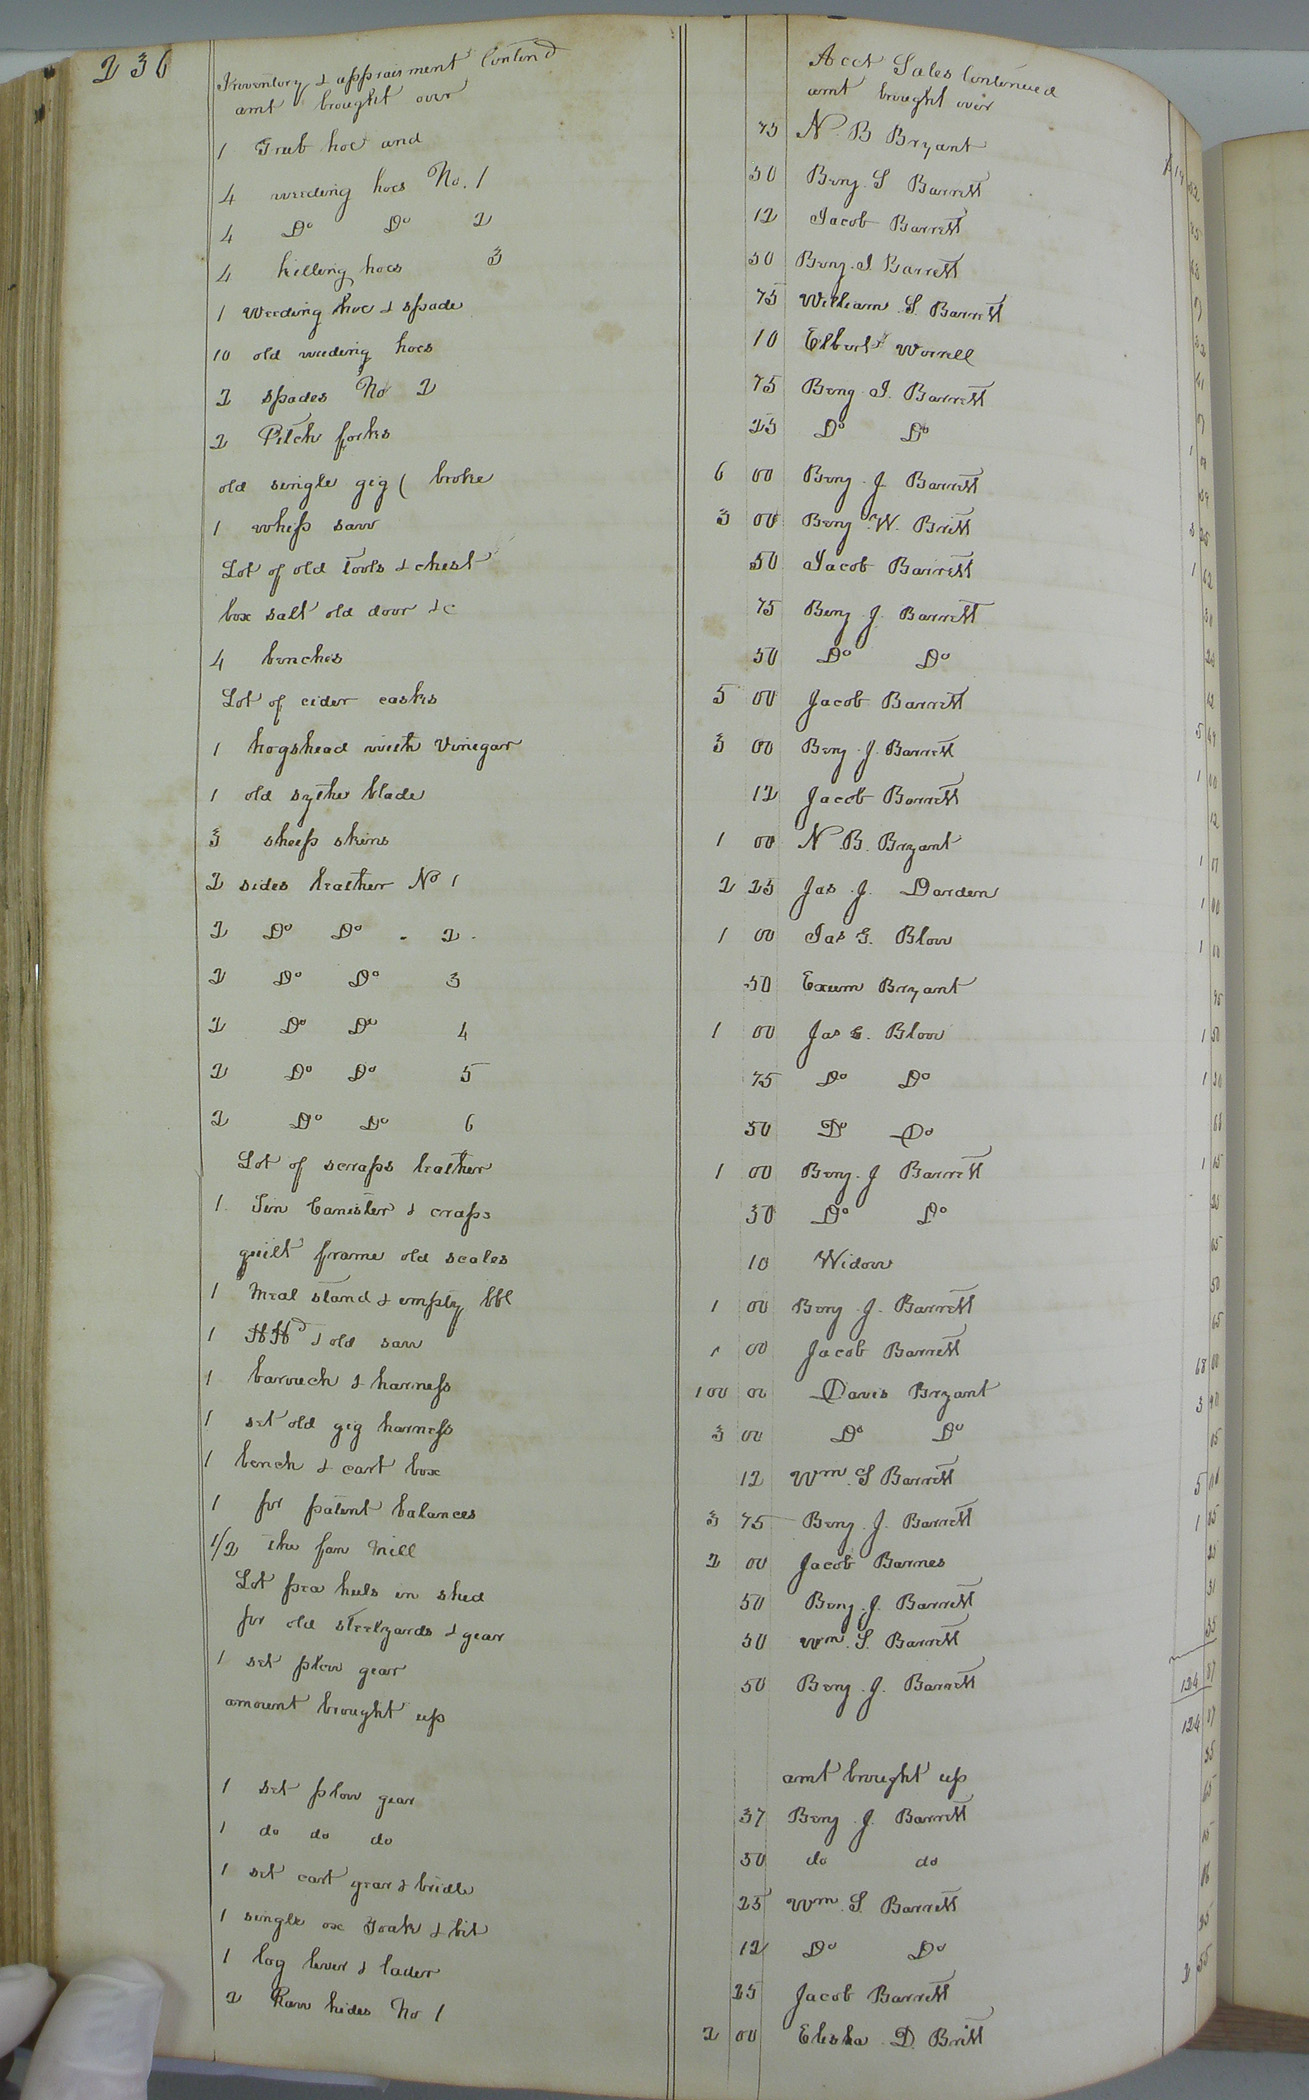 236
Inventory & appraisment Contind Acct Sales Continued
amt brought over amt brought over
1 Grub hoe and 75 N. B Bryant
4 weeding hoes No. 1 50 Benj. S Barrett
4 Do Do 2 12 Jacob Barrett
4 hilling hoes 3 50 Benj. J. Barrett
1 Weeding hoe & spade 75 William S. Barrett
10 old weeding hoes 10 Elbert Worrell
2 spades No 2 75 Benj J. Barrett
2 Pitch forks 25 Do Do
old single gig ( broke 6 00 Benj. J Barrett
1 whip saw 3 00 Benj W. Britt
Lot of old tools & chest 50 Jacob Barrett
box salt old door &c 75 Benj. J. Barrett
4 benches 50 Do Do
Lot of cider casks 5 00 Jacob Barrett
1 hogshead with Vinegar 3 00 Benj. J. Barrett
1 old sythe blade 12 Jacob Barrett
3 sheep skins 1 00 N. B. Bryant
2 sides leather No 1 2 25 Jas. J. Darden
2 Do Do 2 1 00 Jas G. Blow
2 Do Do 3 50 Exum Bryant
2 Do Do 4 1 00 Jas G. Blow
2 Do Do 5 75 Do Do
2 Do Do 6 50 Do Do
Lot of scraps leather 1 00 Benj. J Barrett
1 Tin Canister & craps 50 Do Do
quilt frame old scales 10 Widow
1 Meal stand & empty bbl 1 00 Benj. J. Barrett
1 HHd & old saw 1 00 Jacob Barrett
1 barouch & harness 100 00 Davis Bryant
1 set old gig harness 3 00 Do Do
1 bench & cart box 12 Wm. S Barrett
1 pr patent balances 3 75 Benj. J. Barrett
1/2 the fan Mill 2 00 Jacob Barnes
Lot pea huls in shed 50 Benj. J. Barrett
pr old steelyards & gear 50 Wm. S. Barrett
1 set plow gear 50 Benj. J. Barrett
amount brought up
amt brought up
1 set plow gear 37 Benj. J. Barrett
1 do do do 50 do do
1 set cart gear & bridle 25 Wm. S. Barrett
1 single ox Yoak & bit 12 Do Do
1 log lever & lader 25 Jacob Barrett
2 Raw hides No 1 2 00 Elisha D. Britt